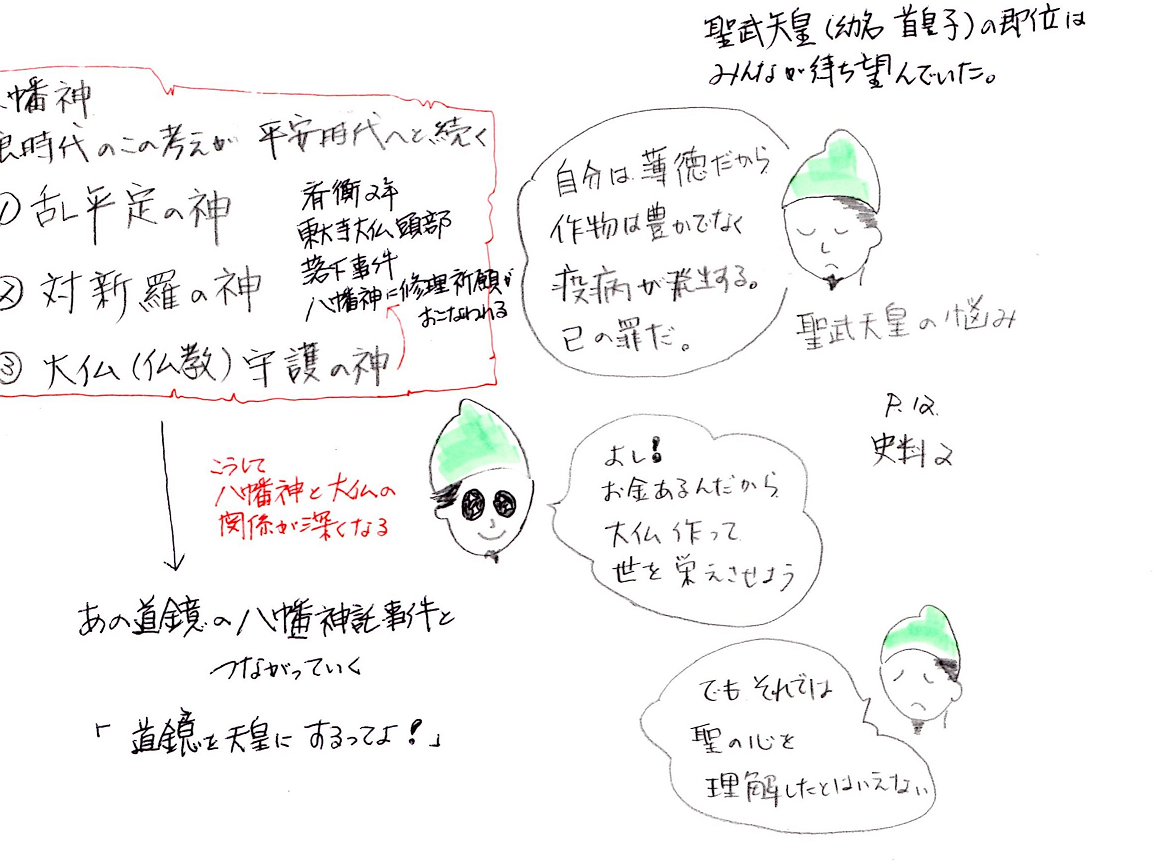 聖武天皇(幼名 首皇子)の即位は
みんなが待ち望んでいた。
幡神
時代のこの考えが 平安時代へと続く
① 乱平定の神
② 対新羅の神
③ 大仏(仏教)守護の神
斉衡2年
東大寺大仏頭部
落下事件
八幡神に修理祈願が
おこなわれる
自分は薄徳だから
作物は豊かでなく
疫病が発生する。
己の罪だ。
聖武天皇の悩み
P.12
史料2
こうして
八幡神と大仏の
関係が深くなる
よし!
お金あるんだから
大仏作って
世を栄えさせよう
あの道鏡の八幡神託事件と
つながっていく
「道鏡を天皇にするってよ!」
でもそれでは
聖の心を
理解したとはいえない